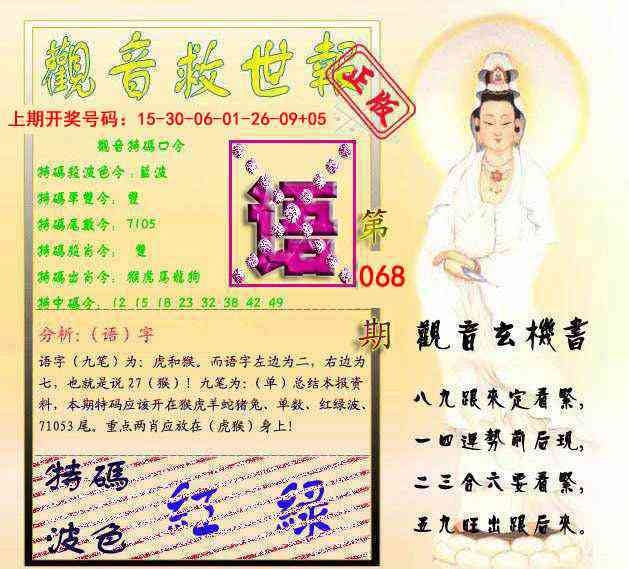 觀音救世報
正版
上期开奖号码：15-30-06-01-26-09+05
觀音特碼口令
特碼殺波色令：藍波
特碼單雙令： 雙
特碼尾數令： 7105
特碼殺肖令： 雙
特碼出肖令： 猴虎馬龍狗
特中碼令： 12 15 18 23 32 38 42 49
语
第
068
期
分析:（语）字
语字（九笔）为：虎和猴。而语字左边为二，右边为
七，也就是说 27（猴）！九笔为：（单）总结本报资
料，本期特码应该开在猴虎羊蛇猪兔、单数、红绿波、
71053 尾。重点两肖应放在（虎猴）身上！
特碼
波色
紅 綠
觀音玄機書
八九跟來定看緊，
一四運勢前后現，
二三合六要看緊，
五九旺出跟后來。